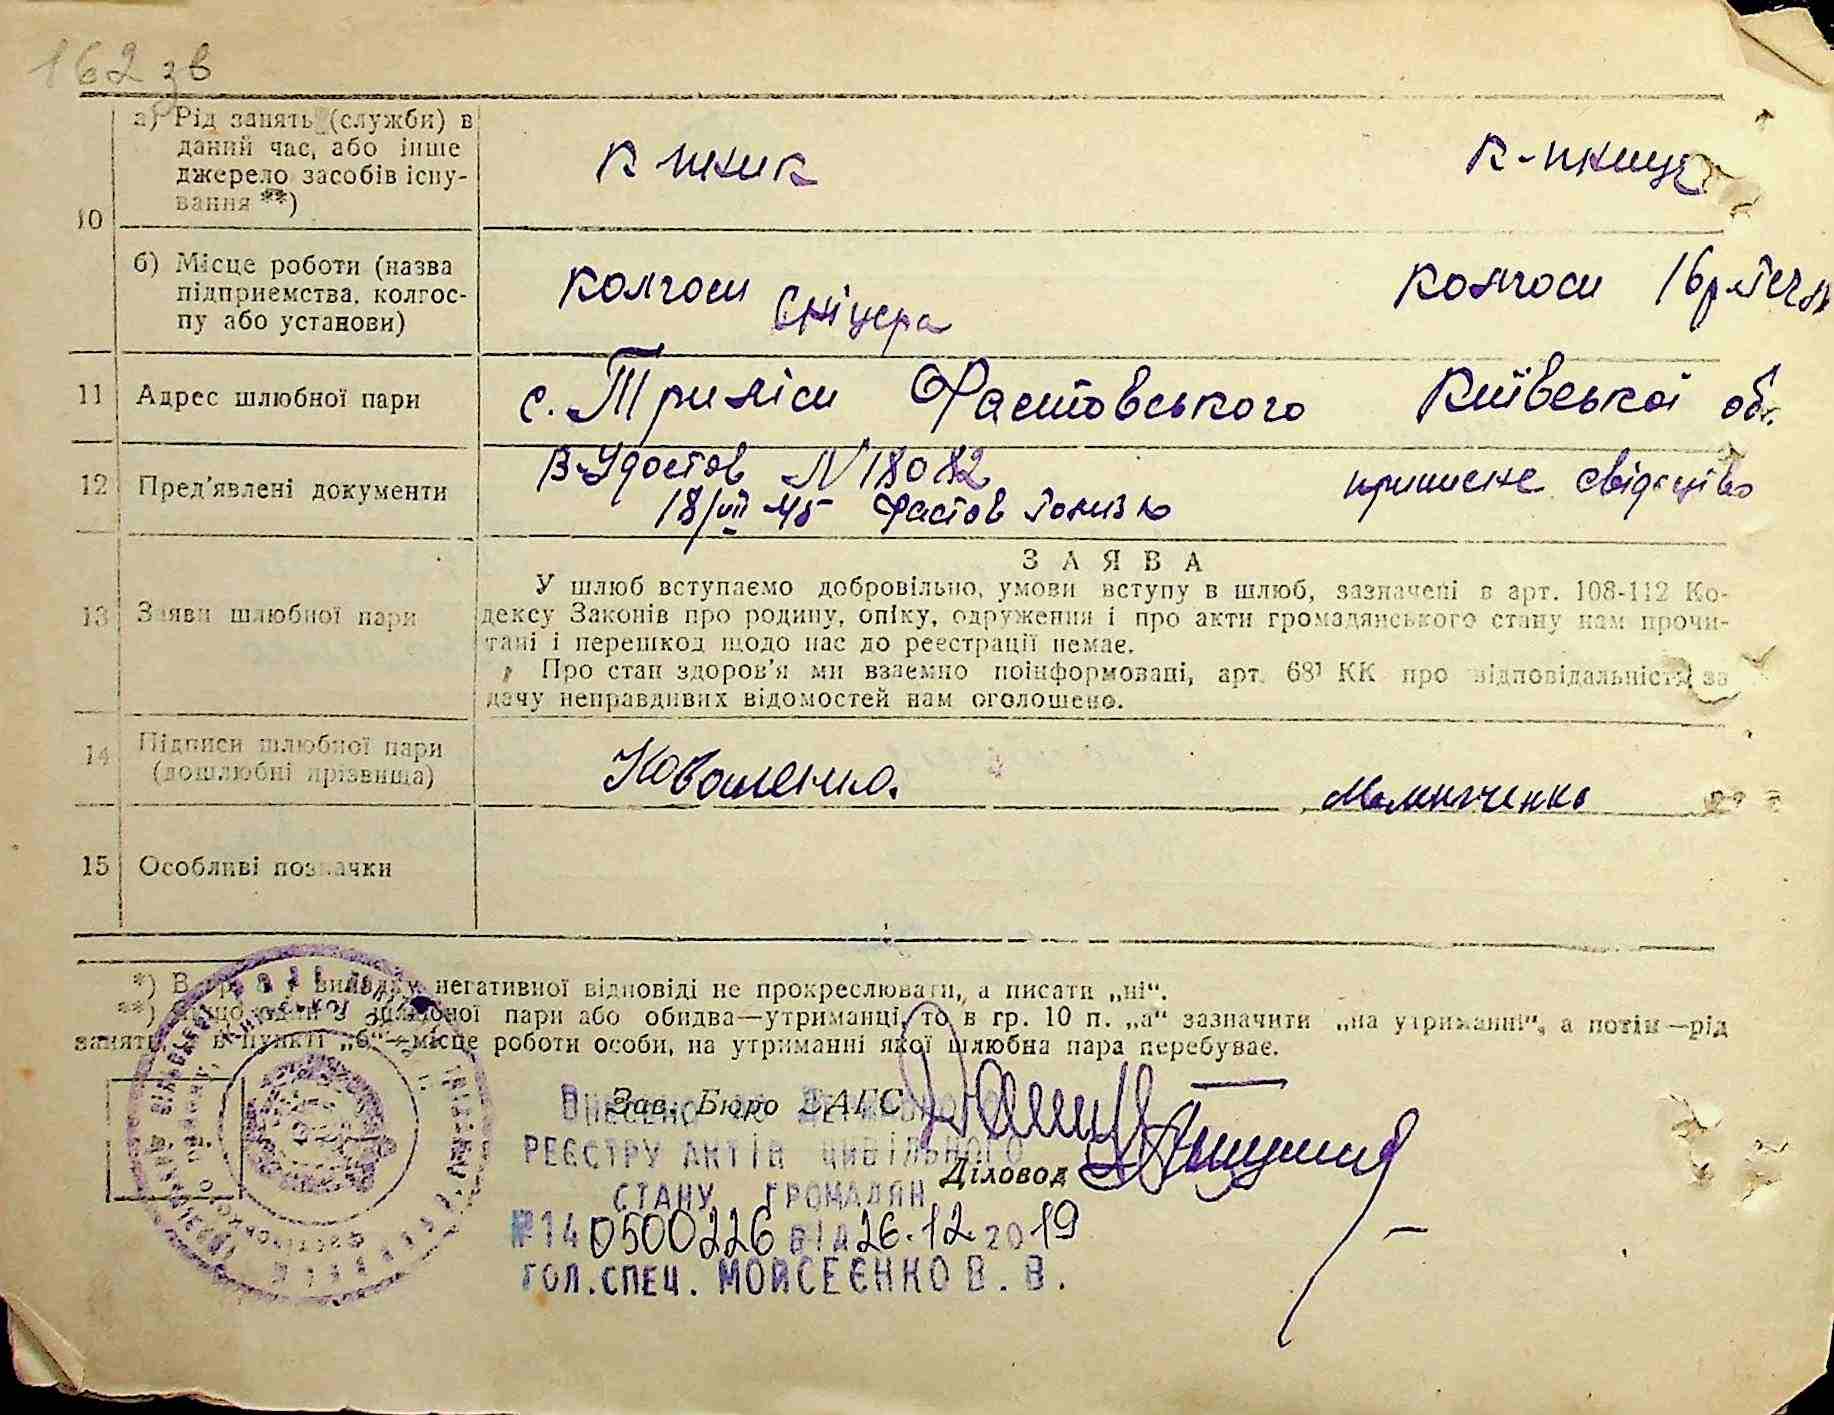 162 зв
10
а) Рід занять (служби) в
даний час, або інше
джерело засобів існу-
вання **)
к-пник
к-пниця
б) Місце роботи (назва
підприємства, колгос-
пу або установи)
колгосп
колгосп 16 р
11
Адрес шлюбної пари
с. Триліси Фастовського Київської об.
12
Пред'явлені документи
В-Удостов N 18082
18/VII 45 Фастов
приписне свідоцтво
13
Заяви шлюбної пари
ЗАЯВА
У шлюб вступаємо добровільно, умови вступу в шлюб, зазначені в арт. 108-112 Ко-
дексу Законів про родину, опіку, одруження і про акти громадянського стану нам прочи-
тані і перешкод щодо нас до реєстрації немає.
Про стан здоров'я ми взаємно поінформовані, арт. 68¹ КК про відповідальність за
дачу неправдивих відомостей нам оголошено.
14
Підписи шлюбної пари
(дошлюбні прізвища)
Коваленко.
15
Особливі позначки
*) В гр. 8 у випадку негативної відповіді не прокреслювати, а писати „ні“.
**) Якщо один з шлюбної пари або обидва—утриманці, то в гр. 10 п. „а“ зазначити „на утриманні“, а потім—рід
занять, а в пункті „б“—місце роботи особи, на утриманні якої шлюбна пара перебуває.
Зав. Бюро ЗАГС
Діловод
ВНЕСЕНО ДО ДЕРЖАВНОГО
РЕЄСТРУ АКТІВ ЦИВІЛЬНОГО
СТАНУ ГРОМАДЯН
№14 0500226 ВІД 26.12 2019
ГОЛ.СПЕЦ. МОЙСЕЄНКО В. В.